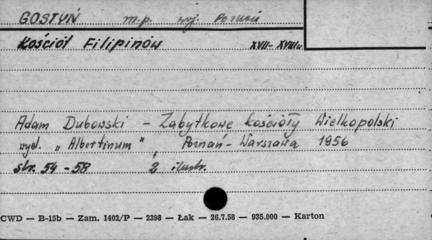 GOSTYŃ m.p. woj. Poznań
Kościół Filipinów XVII-XVIII w.
Adam Dubowski - Zabytkowe kościoły Wielkopolski
wyd. "Albertinum", Poznań-Warszawa 1956
str. 54-58 2 ilustr.
CWD — B-15b — Zam. 1402/P — 2398 — Łak — 26.7.58 — 935.000 — Karton